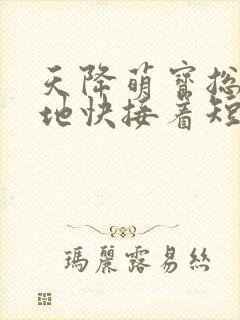 天降萌寶総
地快接着短
瑪麗露易絲